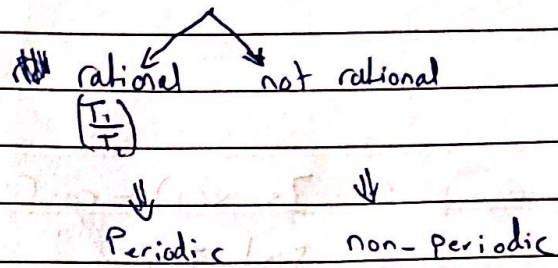 rational not rational
(T₁/T₂)
Periodic non-periodic